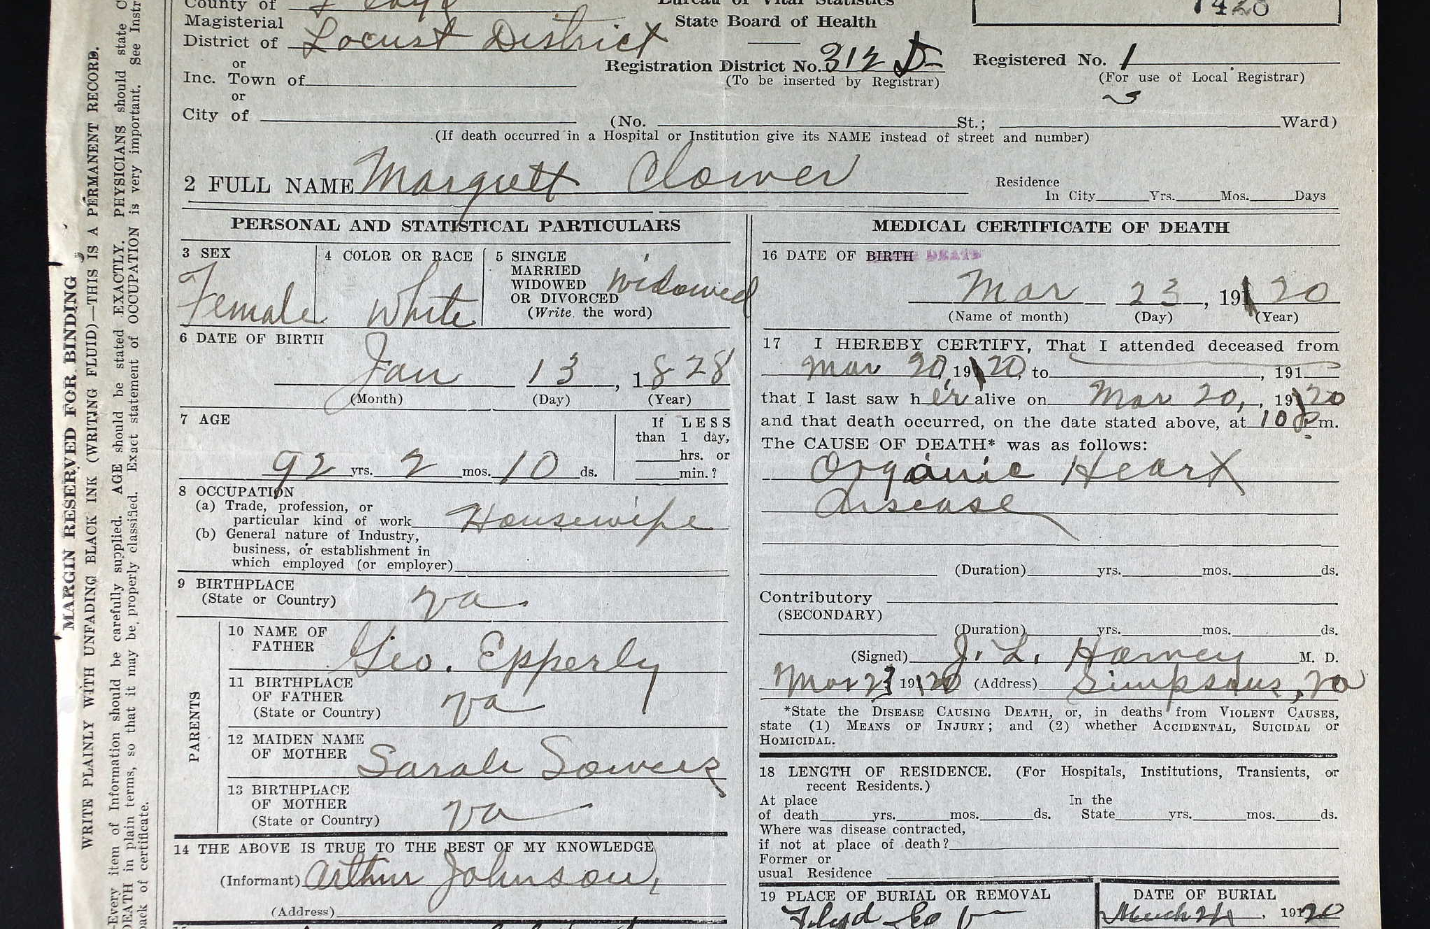 County of Floyd
Bureau of Vital Statistics
State Board of Health
1428
Magisterial
District of Locust District
or
Inc. Town of
or
City of
Registration District No. 312 D
(To be inserted by Registrar)
Registered No. 1
(For use of Local Registrar)
(No. St.; Ward)
(If death occurred in a Hospital or Institution give its NAME instead of street and number)
2 FULL NAME Margrett Clower
Residence
In City Yrs. Mos. Days
PERSONAL AND STATISTICAL PARTICULARS
3 SEX
Female
4 COLOR OR RACE
White
5 SINGLE
MARRIED
WIDOWED
OR DIVORCED
(Write the word)
Widowed
6 DATE OF BIRTH
Jan 13, 1828
(Month) (Day) (Year)
7 AGE
92 yrs. 2 mos. 10 ds.
If LESS
than 1 day,
hrs. or
min.?
8 OCCUPATION
(a) Trade, profession, or
particular kind of work Housewife
(b) General nature of Industry,
business, or establishment in
which employed (or employer)
9 BIRTHPLACE
(State or Country) Va
PARENTS
10 NAME OF
FATHER Geo. Epperly
11 BIRTHPLACE
OF FATHER
(State or Country) Va
12 MAIDEN NAME
OF MOTHER Sarah Sowers
13 BIRTHPLACE
OF MOTHER
(State or Country) Va
14 THE ABOVE IS TRUE TO THE BEST OF MY KNOWLEDGE
(Informant) Arthur Johnson,
(Address)
MEDICAL CERTIFICATE OF DEATH
16 DATE OF BIRTH DEATH
Mar 23, 1920
(Name of month) (Day) (Year)
17 I HEREBY CERTIFY, That I attended deceased from
Mar 20, 1920, to , 191
that I last saw her alive on Mar 20, 1920
and that death occurred, on the date stated above, at 10 P m.
The CAUSE OF DEATH* was as follows:
Organic Heart
disease
(Duration) yrs. mos. ds.
Contributory
(SECONDARY)
(Duration) yrs. mos. ds.
(Signed) J. L. Harvey M. D.
Mar 23 1920 (Address) Simpsons, Va
*State the DISEASE CAUSING DEATH, or, in deaths from VIOLENT CAUSES,
state (1) MEANS OF INJURY; and (2) whether ACCIDENTAL, SUICIDAL or
HOMICIDAL.
18 LENGTH OF RESIDENCE. (For Hospitals, Institutions, Transients, or
recent Residents.)
At place
of death yrs. mos. ds.
In the
State yrs. mos. ds.
Where was disease contracted,
if not at place of death?
Former or
usual Residence
19 PLACE OF BURIAL OR REMOVAL
Floyd Co
DATE OF BURIAL
March 24, 1920
MARGIN RESERVED FOR BINDING
WRITE PLAINLY WITH UNFADING BLACK INK (WRITING FLUID)—THIS IS A PERMANENT RECORD.
Every item of Information should be carefully supplied. AGE should be stated EXACTLY. PHYSICIANS should state
DEATH in plain terms, so that it may be properly classified. Exact statement of OCCUPATION is very important. See Instr
back of certificate.